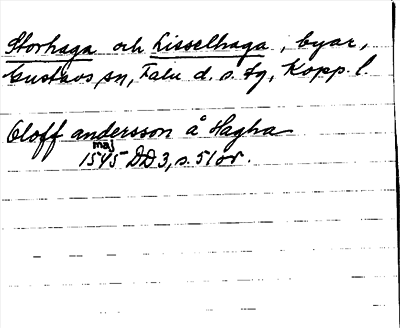 Storhaga och Lisselhaga, byar,
Gustavs sn, Falu d. s. fg, Kopp. l.
Oloff andersson å Hagha
maj
1545 DD 3, s. 51 öv.